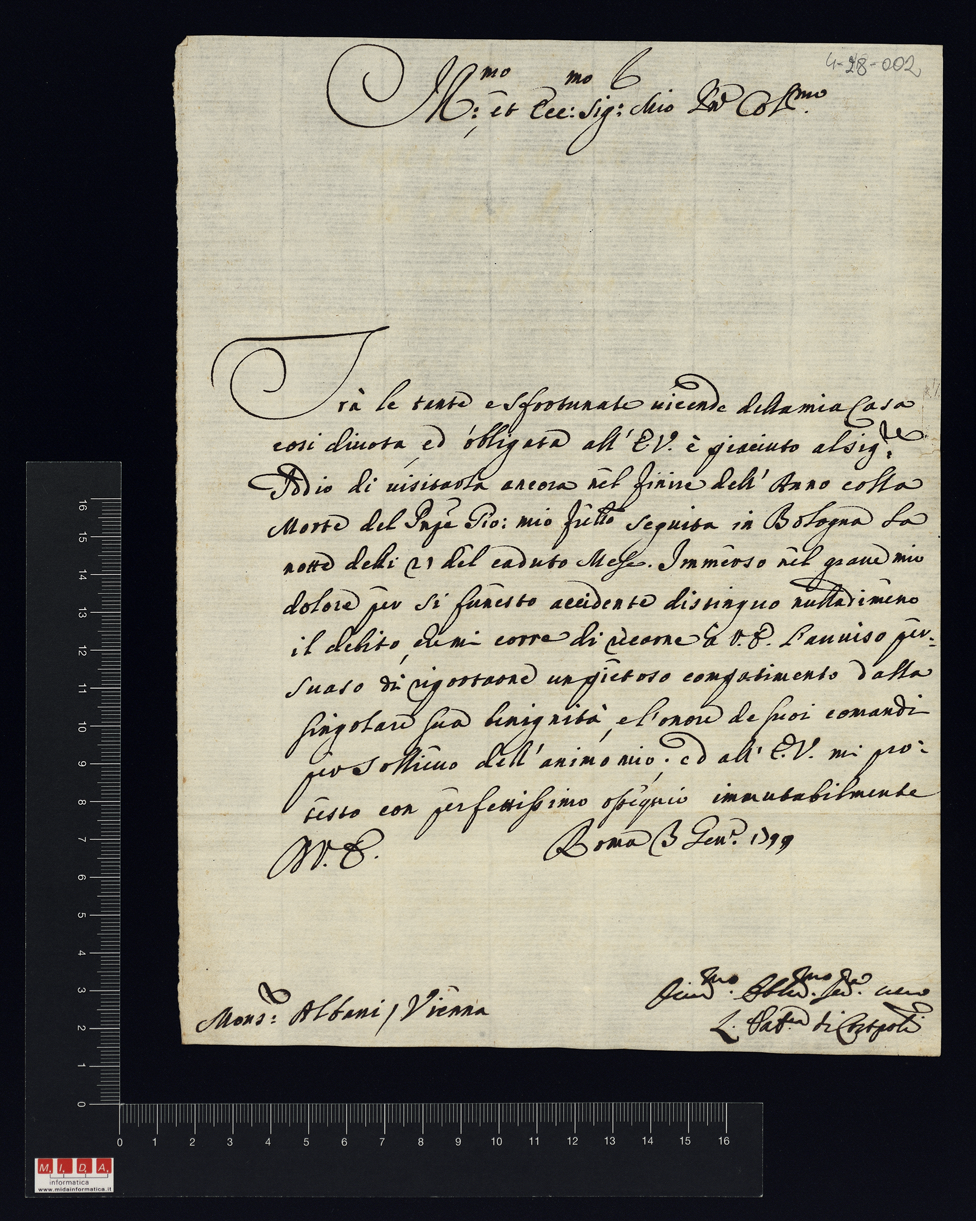 4-28-002
Ill:mo et Ecc:mo Sig:r Mio P̄ne Col:mo
Trà le tante e sfortunate vicende della mia Casa
così divota, ed obbligata all' E.V. è piaciuto al Sig:re
Iddio di visitarla ancora nel finire dell' Anno colla
Morte del Pnpe Gio: mio frllo seguita in Bologna la
notte delli 21 del caduto Mese. Immerso nel grave mio
dolore per sì funesto accidente distinguo nulladimeno
il debito, che mi corre di recarne à V.E. l'avviso per-
suaso di riportarne un pietoso compatimento dalla
singolare sua benignità, e l'onore de suoi comandi
per sollievo dell' animo mio; ed all' E.V. mi pro-
testo con perfettissimo ossequio immutabilmente
D V. E. Roma 3 Gen.o 1799
Mons:r Albani / Vienna
Div:mo Obblig:mo Ser:e vero
16
15
14
13
12
11
10
9
8
7
6
5
4
3
2
1
0
0 1 2 3 4 5 6 7 8 9 10 11 12 13 14 15 16
M. I. D. A.
informatica
www.midainformatica.it